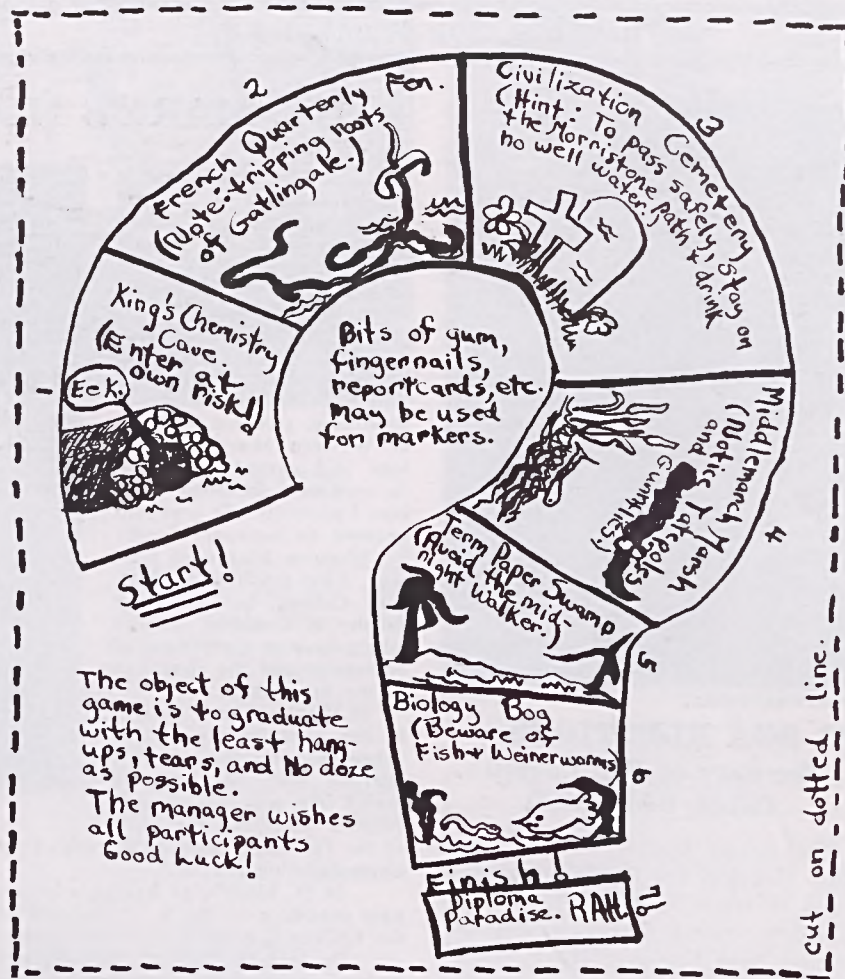 Start!
1
King's Chemistry
Cave.
(Enter at
own risk!)
Eek.
2
French Quarterly For.
(Note: tripping roots
of Gatlingale.)
3
Civilization Cemetery
(Hint: To pass safely, stay on
the Morristone path & drink
no well water.)
4
Middlemarch Marsh
(Notice Tatepoles
and
Gumflies.)
5
Term Paper Swamp
(Avoid the mid-
night walker.)
6
Biology Bog
(Beware of
Fish & Weinerworms)
Finish
7
Diploma
Paradise. RAH.
Bits of gum,
fingernails,
reportcards, etc.
may be used
for markers.
The object of this
game is to graduate
with the least hang-
ups, tears, and No doze
as possible.
The manager wishes
all participants
Good Luck!
cut on dotted line.